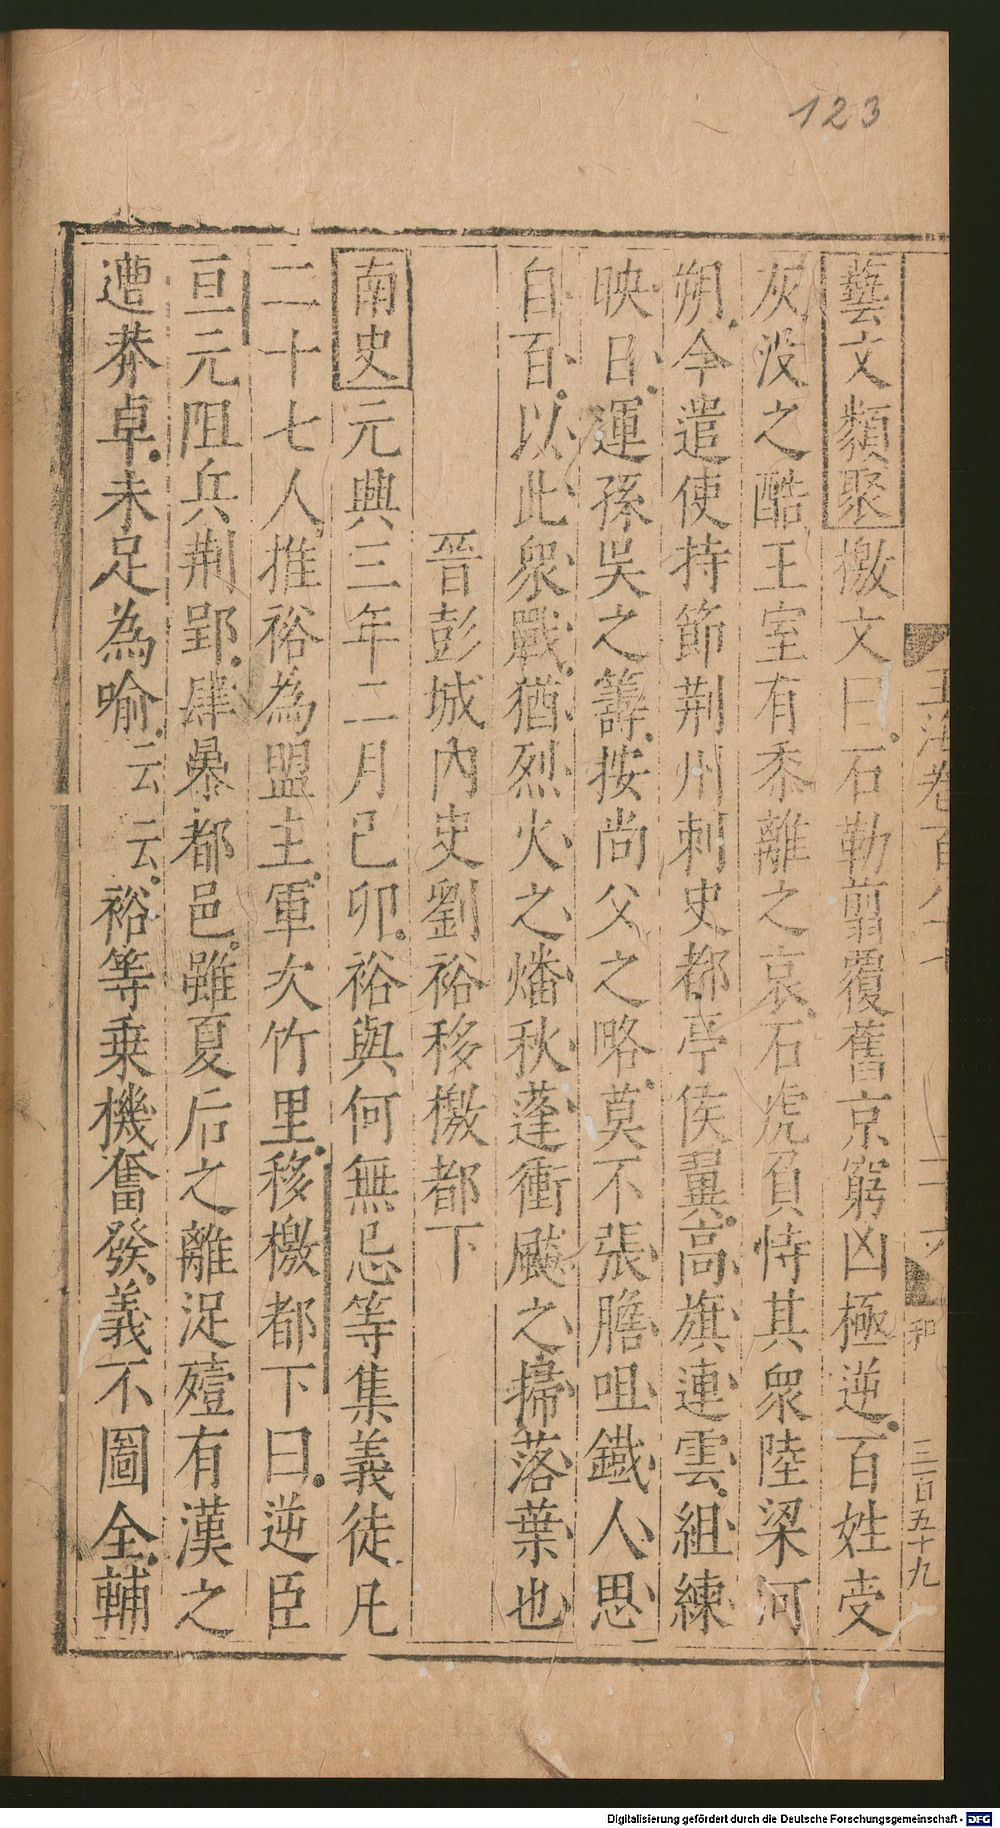 123
藝文類聚檄文曰石勒翦覆舊京窮凶極逆百姓受
灰没之酷王室有黍離之哀石虎負恃其衆陸梁河
朔今遣使持節荆州刺史都亭侯翼高旗連雲組練
映日運孫吳之籌按尚父之略莫不張膽咀鐵人思
自百以此衆戰猶烈火之燔秋蓬衝飈之掃落葉也
晉彭城內史劉裕移檄都下
南史元興三年二月己卯裕與何無忌等集義徒凡
二十七人推裕為盟主軍次竹里移檄都下曰逆臣
亘元阻兵荆郢肆暴都邑雖夏后之離浞殪有漢之
遭莽卓未足為喻云云裕等乗機奮發義不圖全輔
玉海卷百八十七
和
三百五十九
Digitalisierung gefördert durch die Deutsche Forschungsgemeinschaft - DFG